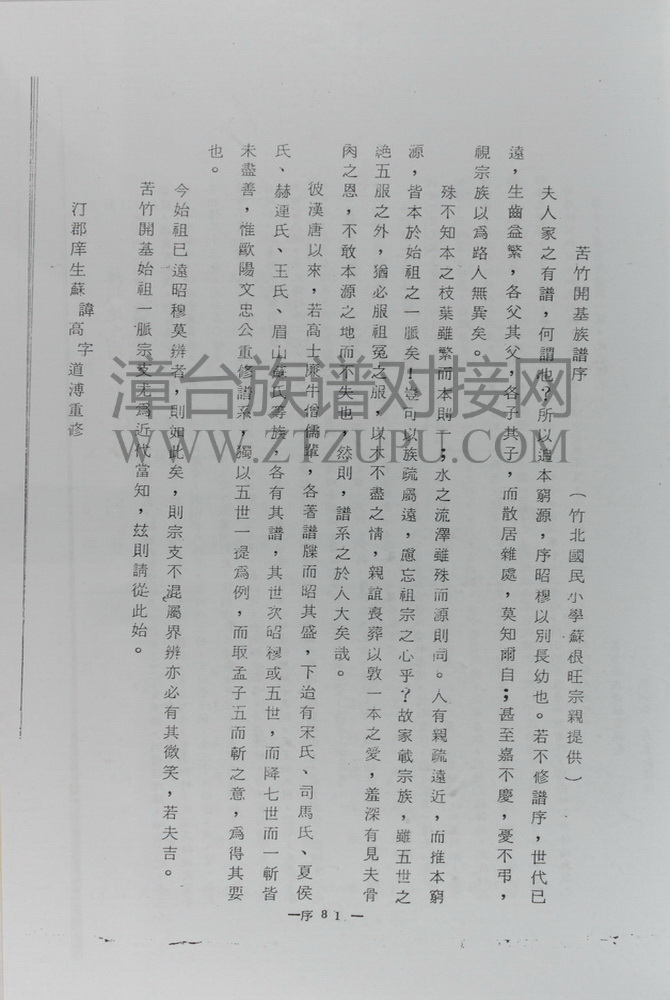 苦竹開基族譜序　　(竹北國民小學蘇根旺宗親提供)
夫人家之有譜，何謂也？所以追本窮源，序昭穆以別長幼也。若不修譜序，世代已
遠，生齒益繁，各父其父，各子其子，而散居雜處，莫知爾自；甚至嘉不慶，憂不弔，
視宗族以為路人無異矣。
殊不知本之枝葉雖繁而本則一；水之流澤雖殊而源則同。人有親疏遠近，而推本窮
源，皆本於始祖之一脈矣！豈可以族疏屬遠，慮忘祖宗之心乎？故家藏宗族，雖五世之
絶五服之外，猶必服祖冕之服，以水不盡之情，親誼喪葬以敦一本之愛，羞深有見夫骨
肉之恩，不敢本源之地而不失也，然則，譜系之於人大矣哉。
彼漢唐以來，若高士廉牛僧儒輩，各著譜牒而昭其盛，下迨有宋氏、司馬氏、夏侯
氏、赫連氏、王氏、眉山蘇氏等族，各有其譜，其世次昭穆或五世，而降七世而一斬皆
未盡善，惟歐陽文忠公重修譜系，獨以五世一提為例，而取孟子五而斬之意，為得其要
也。
今始祖已遠昭穆莫辨者，則如此矣，則宗支不混屬界辨亦必有其微笑，若夫吉。
苦竹開基始祖一脈宗支尤為近代當知，玆則請從此始。
汀郡庠生蘇　諱高字　道溥重修
—序81—
漳台族谱对接网
WWW.ZTZUPU.COM